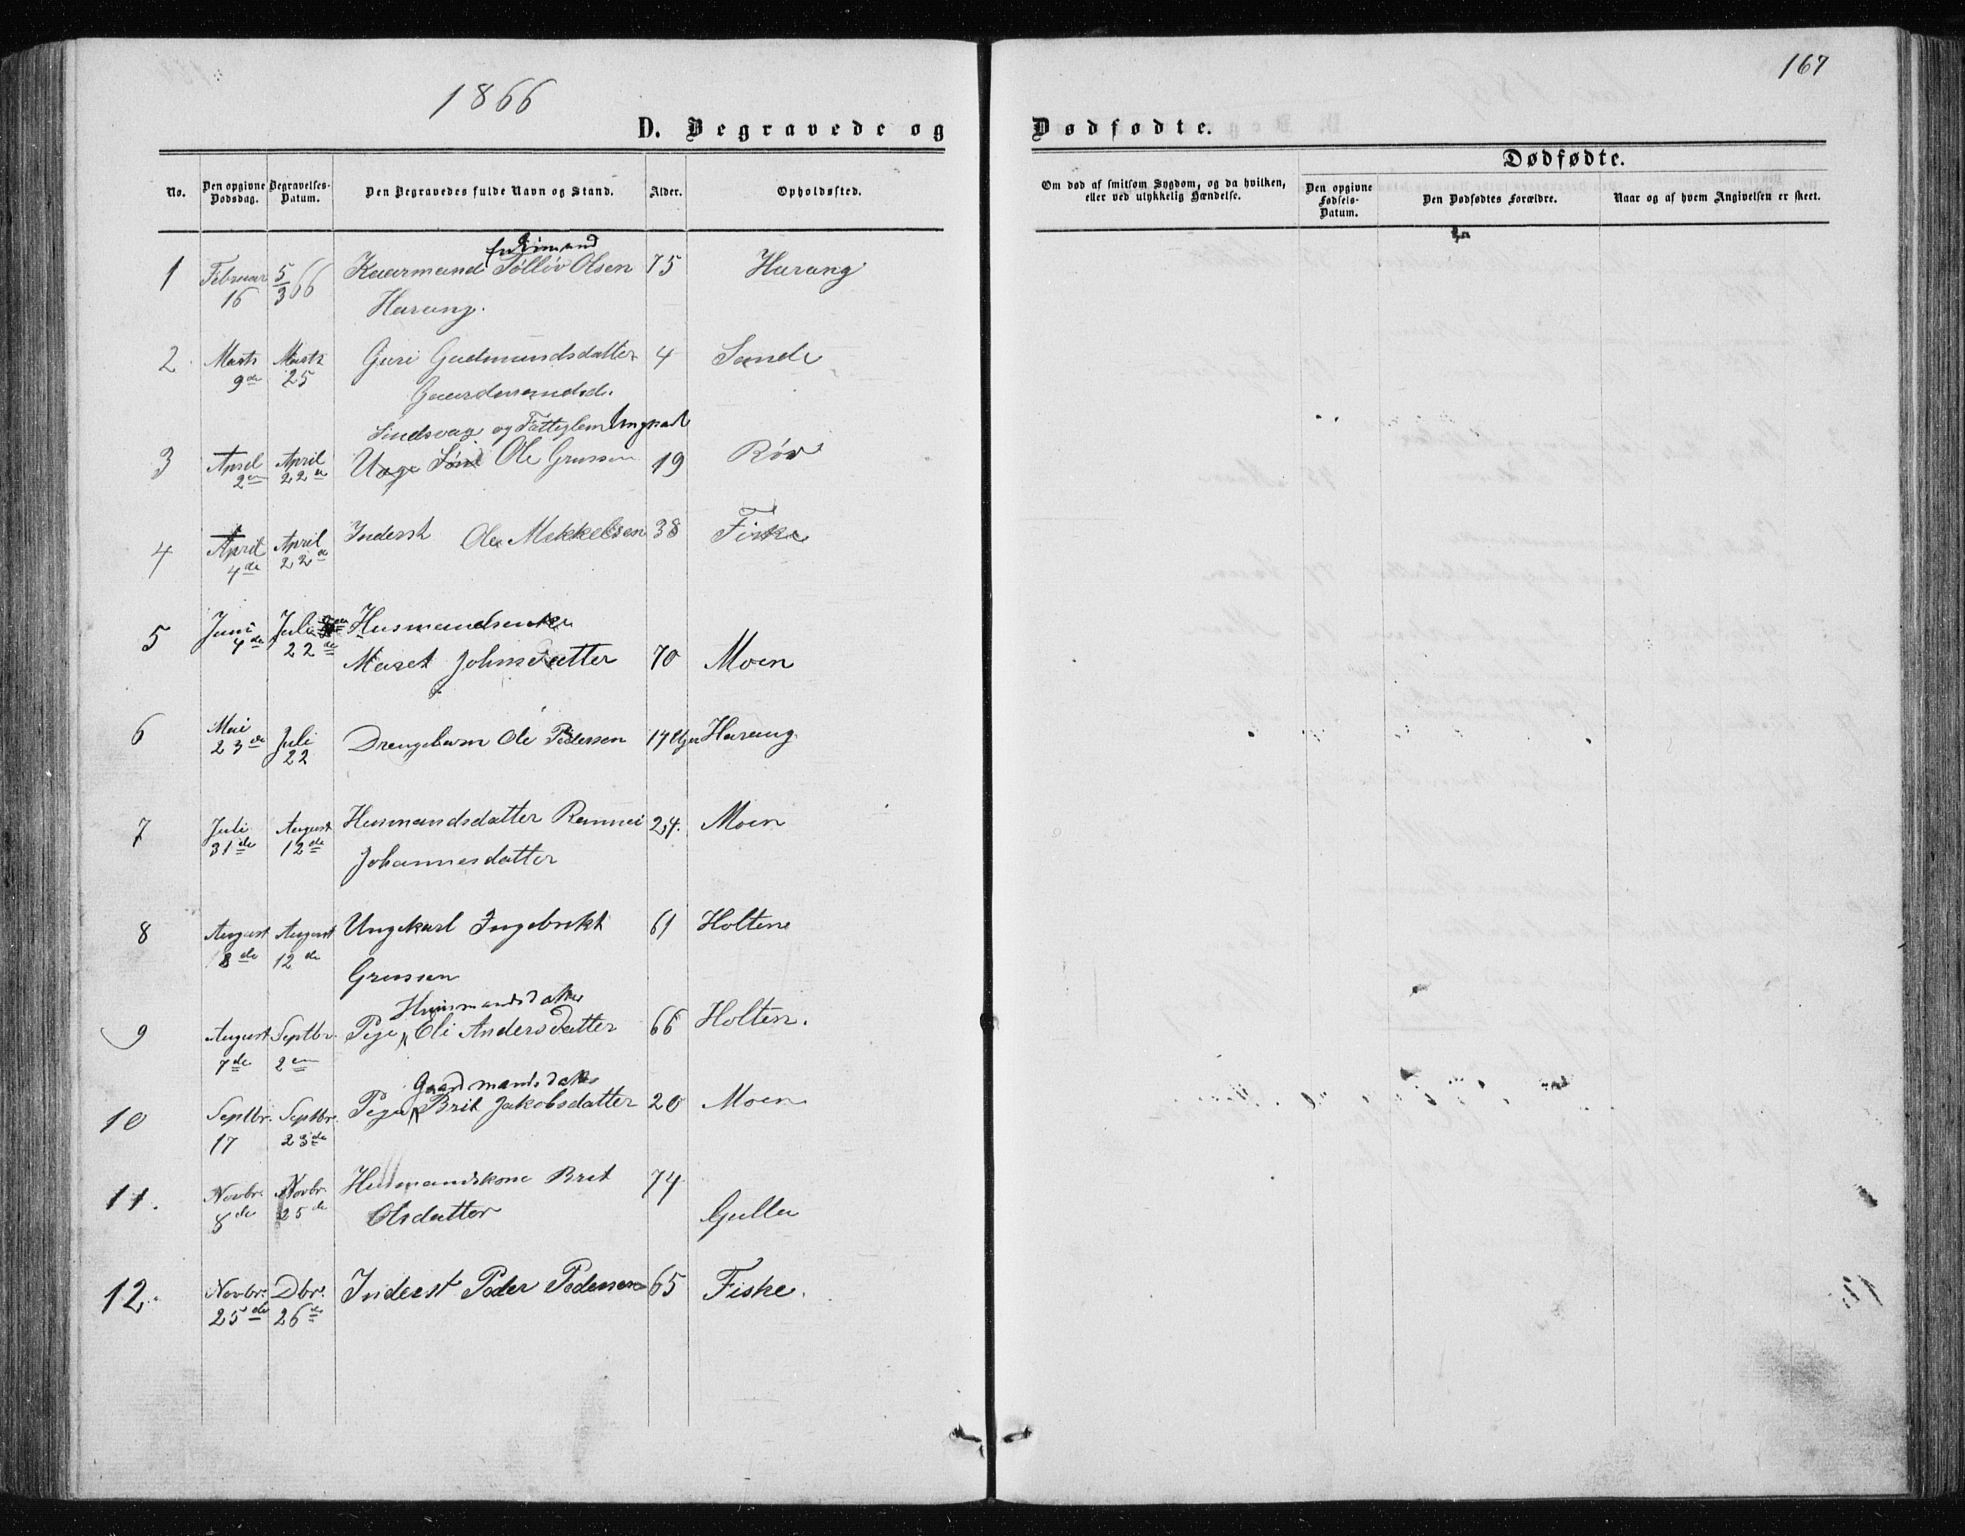 167
1866
D. Begravede og
Dødfødte.
Dødfødte.
No.
Den opgivne Dødsdag.
Begravelses-Datum.
Den Begravedes fulde Navn og Stand.
Alder.
Opholdssted.
Om død af smitsom Sygdom, og da hvilken, eller ved ulykkelig Hændelse.
Den opgivne Fødsels-Datum.
Den Dødfødtes Forældre.
Naar og af hvem Angivelsen er skeet.
1 Februar 5/3 66 Søllöv Olsen 75 Harang
16 Harang.
2 Marts Marts Guri Gudmundsdatter 4 Sande
9de 25 Gaardmandsd.
og Fattiglem
3 April April Ole Grussen 19 Röv
2en 22de
4 April April Inderst Ole Mekkelsen 38 Fiske
4de 22de
5 Juni Juli Husmandsenke
4de 22de Maret Johnsdatter 70 Moen
6 Mai Juli Drengebarn Ole Pedersen 14 Uger Harang
23de 22
7 Juli August Husmandsdatter Rannei 24. Moen
31de 12de Johannesdatter
8 August August Ungekarl Ingebrikt 61 Holten
8de 12de Grussen
Husmandsdatter
9 August Septbr. Pige Eli Andersdatter 66 Holten.
7de 2en
Gaardmandsdatter
10 Septbr. Septbr. Pige Brit Jakobsdatter 20 Moen
17 23de
11. Novbr. Novbr. Husmandskone Brit 74
8de 25de Olsdatter Gulla
12. Novbr. Dbr. Inderst Peder Pedersen 65 Fiske.
25de 26de